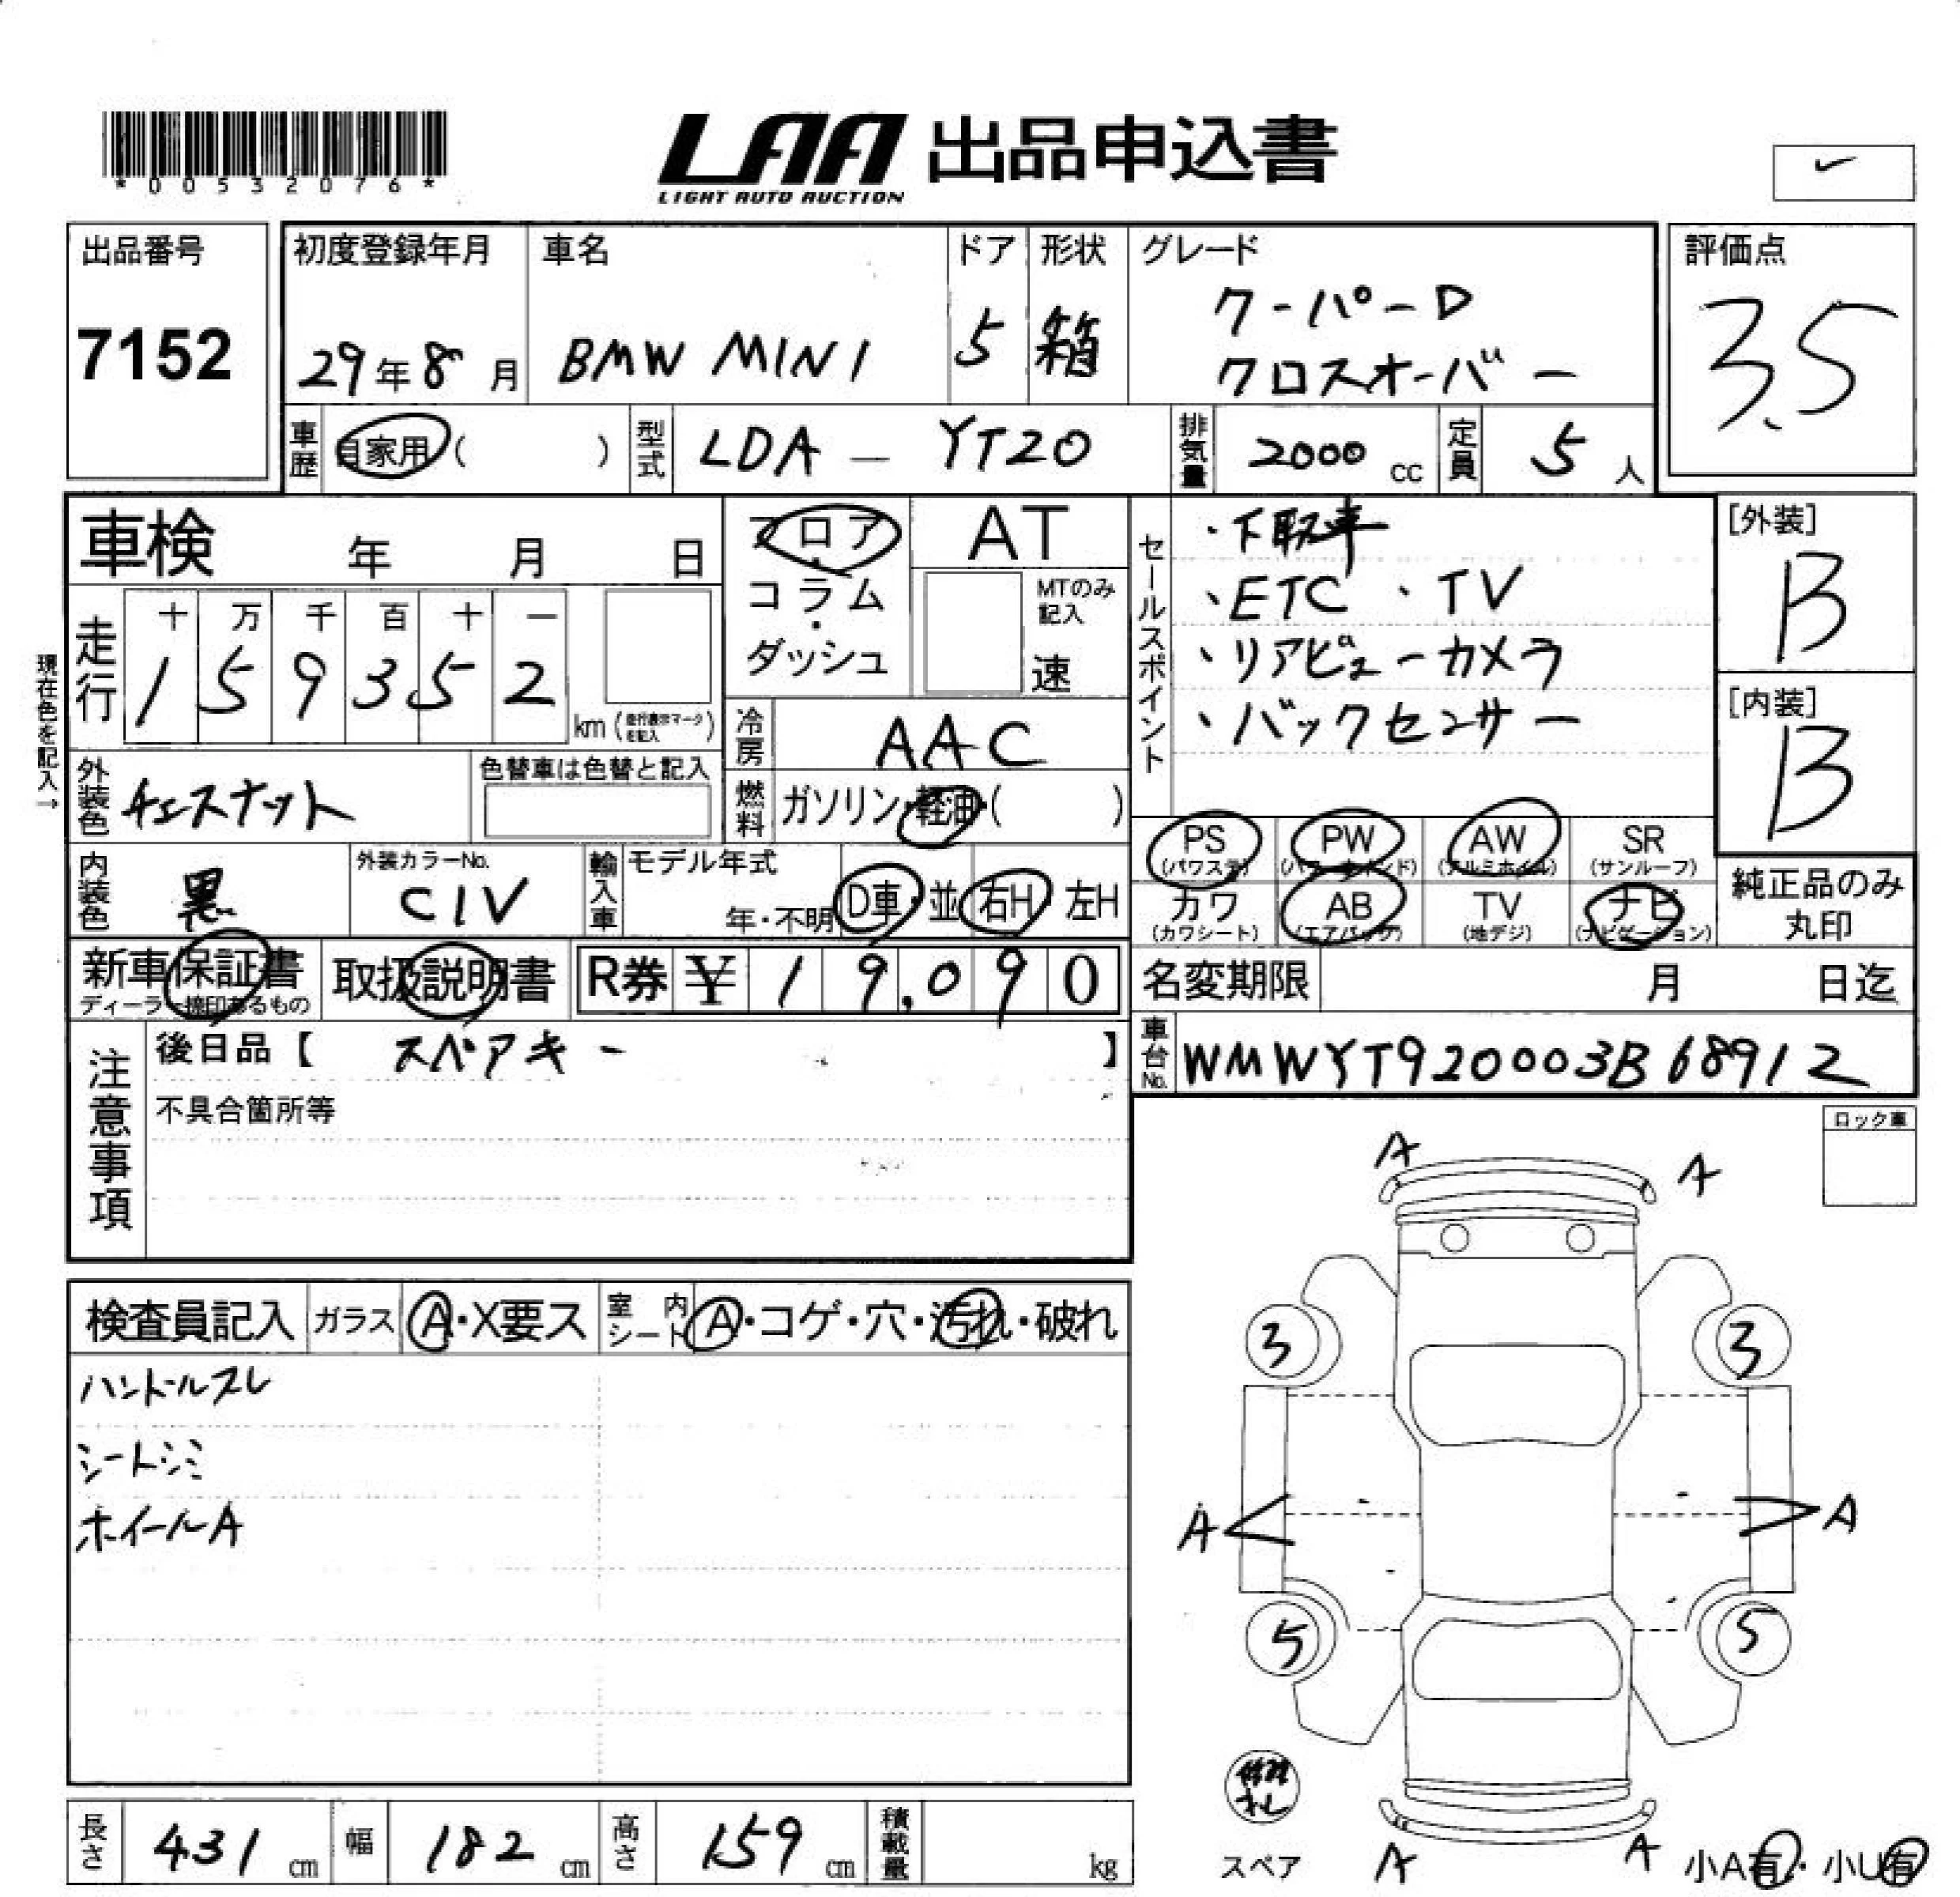 *00532076*
LAA 出品申込書
LIGHT AUTO AUCTION
出品番号
7152
初度登録年月
29年8月
車名
BMW MINI
ドア
5
形状
箱
グレード
クーパーD
クロスオーバー
評価点
3.5
車歴
自家用( )
型式
LDA - YT20
排気量
2000 cc
定員
5 人
車検 年 月 日
フロア・コラム・ダッシュ
AT
MTのみ記入
速
走行
十 万 千 百 十 一
1 5 9 3 5 2
km (走行表示マークを記入)
現在色を記入→
冷房
AAC
燃料
ガソリン・軽油・( )
外装色
チェスナット
色替車は色替と記入
内装色
黒
外装カラーNo.
C1V
輸入車
モデル年式
年・不明
D車・並
右H・左H
セールスポイント
・下取車
・ETC ・TV
・リアビューカメラ
・バックセンサー
[外装]
B
[内装]
B
PS (パワステ)
PW (パワーウインド)
AW (アルミホイル)
SR (サンルーフ)
カワ (カワシート)
AB (エアバック)
TV (地デジ)
ナビ (ナビゲーション)
純正品のみ丸印
新車保証書
ディーラー捺印あるもの
取扱説明書
R券 ¥ 19,090
名変期限 月 日迄
注意事項
後日品【 スペアキー 】
不具合箇所等
車台No.
WMWYT920003B68912
ロック車
検査員記入
ガラス
A・X要ス
室内シート
A・コゲ・穴・汚れ・破れ
ハンドルスレ
シートシミ
ホイールA
A
A
3
3
A
A
5
5
修理キット
スペア
A
A
小A有・小U有
長さ 431 cm
幅 182 cm
高さ 159 cm
積載量 kg